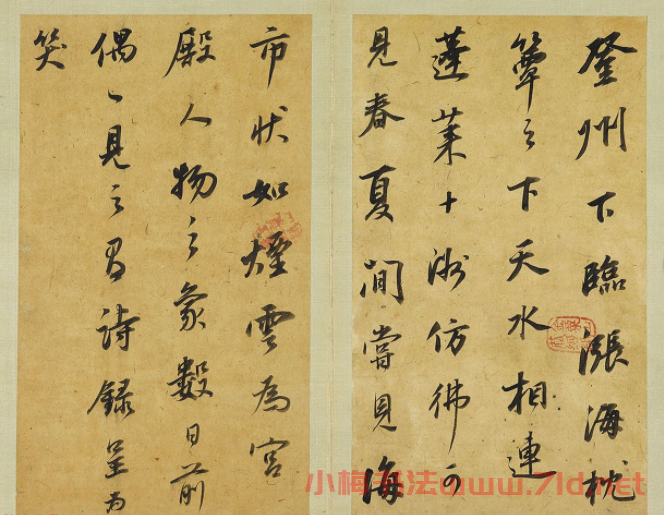 登州下臨漲海枕
簟之下天水相連
蓬萊十洲仿彿可
見春夏間嘗見海
市狀如煙雲為宮
殿人物之象數日前
偶〻見之有詩錄呈為
笑
小梅书法@www.71dd.net